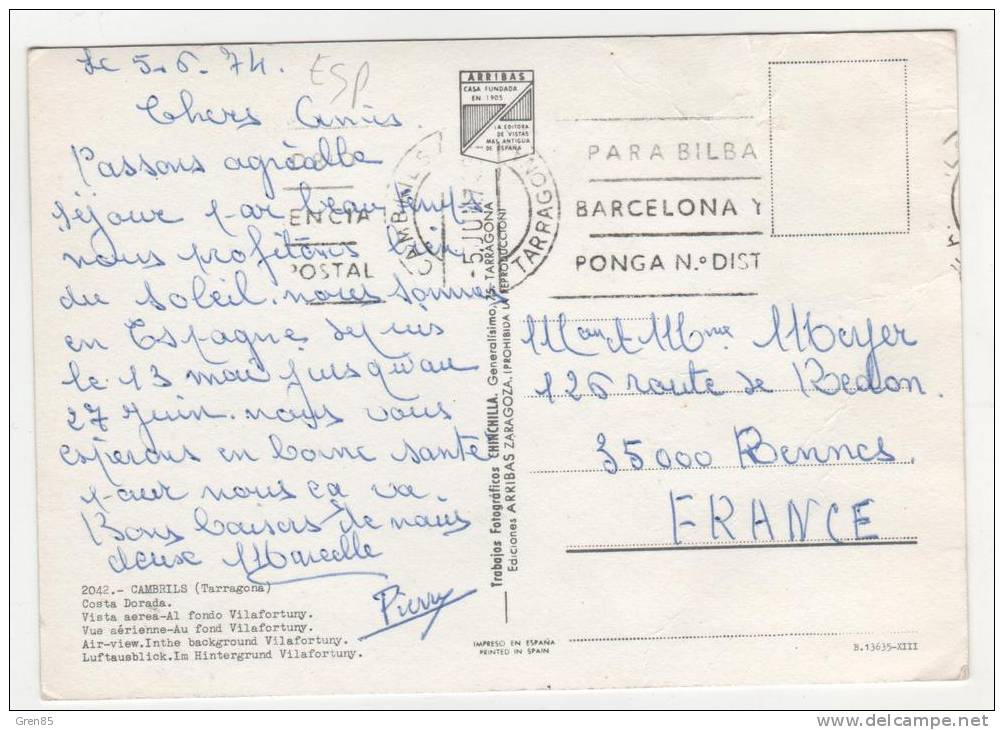 Le 5.6.74.
ESP
Chers Amis.
Passons agréable
séjour par beau temps
nous profitons bien
du soleil. nous sommes
en Espagne depuis
le 13 mai jusqu'au
27 Juin. nous vous
espérons en bonne santé
pour nous ça va.
Bons baisers de nous
deux Marcelle
Pierre
2042.- CAMBRILS (Tarragona)
Costa Dorada.
Vista aerea-Al fondo Vilafortuny.
Vue aérienne-Au fond Vilafortuny.
Air-view.Inthe background Vilafortuny.
Luftausblick.Im Hintergrund Vilafortuny.
ARRIBAS
CASA FUNDADA
EN 1905
LA EDITORA
DE VISTAS
MAS ANTIGUA
DE ESPAÑA
Trabajos Fotográficos CHINCHILLA. Generalísimo, 75. TARRAGONA
Ediciones ARRIBAS ZARAGOZA. (PROHIBIDA LA REPRODUCCION)
IMPRESO EN ESPAÑA
PRINTED IN SPAIN
CAMBRILS
-5.JUN
TARRAGONA
ENCIA
POSTAL
PARA BILBA
BARCELONA Y
PONGA N.º DIST
M et Mme Meyer
126 route de Redon.
35000 Rennes.
FRANCE
B.13635-XIII
Gren85
delcampe.net